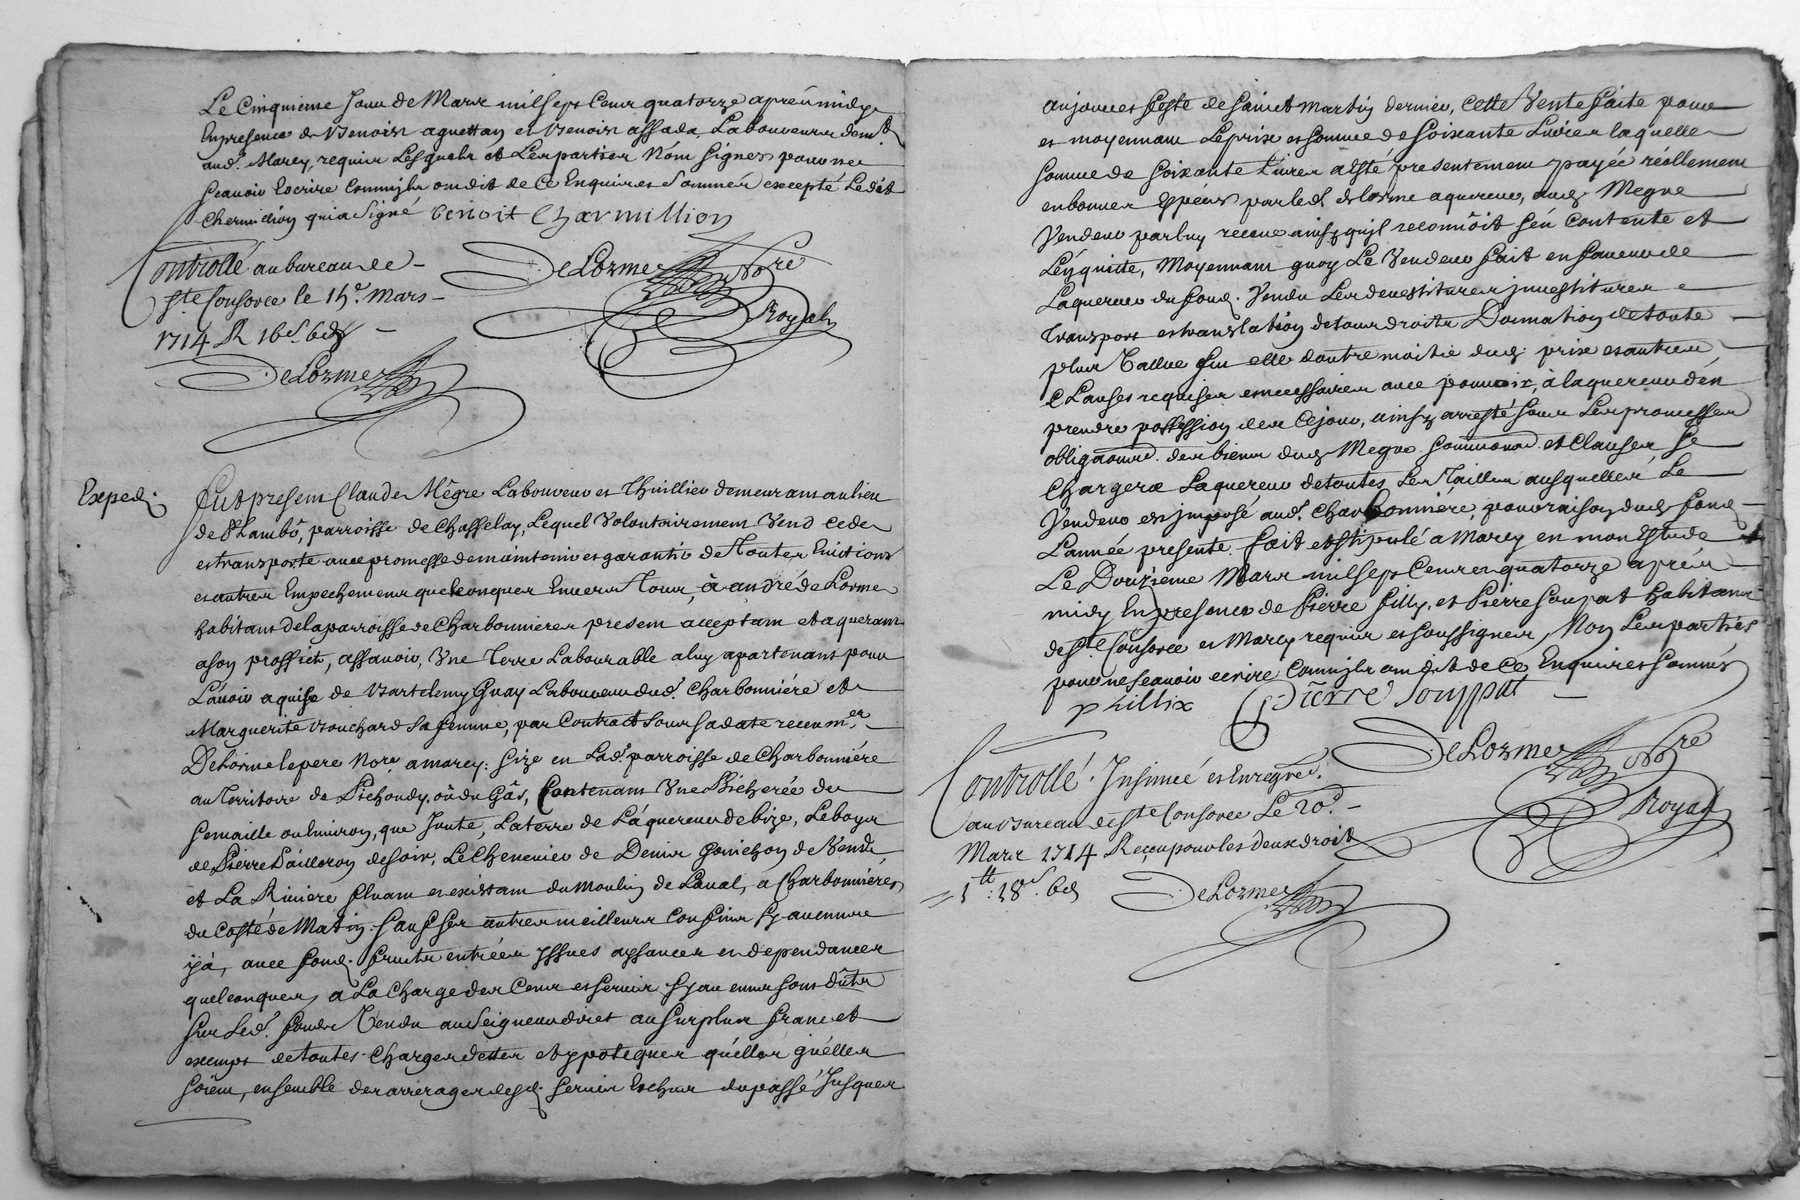 Le Cinquieme Jour de Mars mil sept Cent quatorze aprés midy
En presence de Benoist aguettan et Benoist assada, Laboureurs dem.ts
aud. Marcy, requis Lesquels et Les parties N'ont signés pour ne
sçavoir Escrire Comm'ils ont dit de Ce Enquis et Sommés excepté Ledit
Charmillion qui a signé benoit Charmillion
Controllé au bureau de
Ste Consorce le 15.e Mars
1714 R 16s 6d
DeLorme Nore
Royal
DeLorme
Exped.
Fut present Claude Mêgre Laboureur et Thuillier demeurant au lieu
de St Lambô, parroisse de Chasselay, Lequel Volontairement Vend cede
et transporte avec promesse de maintenir et garantir de Toutes Evictions
et autres Empechements quelconques Envers Tous, à andré de Lorme
habitant de la parroisse de Charbonnieres present acceptant et aquerant
a son proffict, assavoir, Une Terre Labourable a luy apartenant pour
L'avoir aquise de Bartelemy Guay Laboureur dud. Charbonniére et
Marguerite Bouchard sa femme, par Contract sous sa date receu m.er
DeLorme le pere Nore. a marcy: Size en Lad. parroisse de Charbonniére
au Territoire de Pichoudy, où du Gâs, Contenant Une Bicherée de
Semaille ou Environ, que Joute, La terre de L'aquereur de bize, Le boys
de Pierre Pailleron de soir, Le Chenevier de Denis Ponichon de Vend
et La Riviere fluant et exissant du Moulin de Laval, a Charbonniéres
du Costé de Matin, sauf ses autres meilleurs Confins sy aucuns
y a, avec fond. fruits entrées yssues aysances et dependances
quelconques, a La Charge des Cens et servis sy aucuns sont dûts
sur Led. fonds Vendu au Seigneur direct au surplus franc et
exempt de toutes Charges dettes et ypoteques qu'elles qu'elles
soient, ensemble des arrerages desd. servis Eschus du passé Jusques
aujourd et feste de Sainct Martin dernier, Cette Vente faite pour
et moyennant Le prix et somme de Soixante Livres laquelle
somme de soixante Livres a esté presentement payée réellement
en bonnes Especes par led. deLorme aquereur, aud. Megre
Vendeur par luy receue ainsy qu'il reconnôit s'en Contente et
L'en quitte, Moyennant quoy Le Vendeur s'est en faveur de
L'aquereur du fond. Vendu Les devestitures jnvestitures
transport et translation de tous droits Donnation de toute
plus Vallue fut elle d'outre moitié dud. prix et autres
Clauses requises et necessaires avec pouvoir, à L'aquereur d'en
prendre possession des Ce jour, ainsy arresté sous Les promesses
obligaõns. des biens dud. Megre soummons. et Clauses se
Chargera L'aquereur de toutes Les Tailles ausquelles Le
Vendeur est jmposé aud. Charbonniére pour raison dud. fond.
L'année presente. fait et stipulé a Marcy en mon Estude
Le Douzieme Mars mil sept Cent et quatorze aprés
midy En presence de Pierre Filly, et Pierre Soupat habitans
de Ste Consorce et Marcy requis et soussignés, Non Les parties
pour ne sçavoir ecrire Comm'ils ont dit de Ce Enquis et sommés
p killix Pierre Souppat
DeLorme Nore
Royal
Controllé. Insinué et Enregtré.
au Bureau de Ste Consorce Le 20e
Mars 1714 Reçu pour les deux droit
= 1tt: 18s. 6d
DeLorme